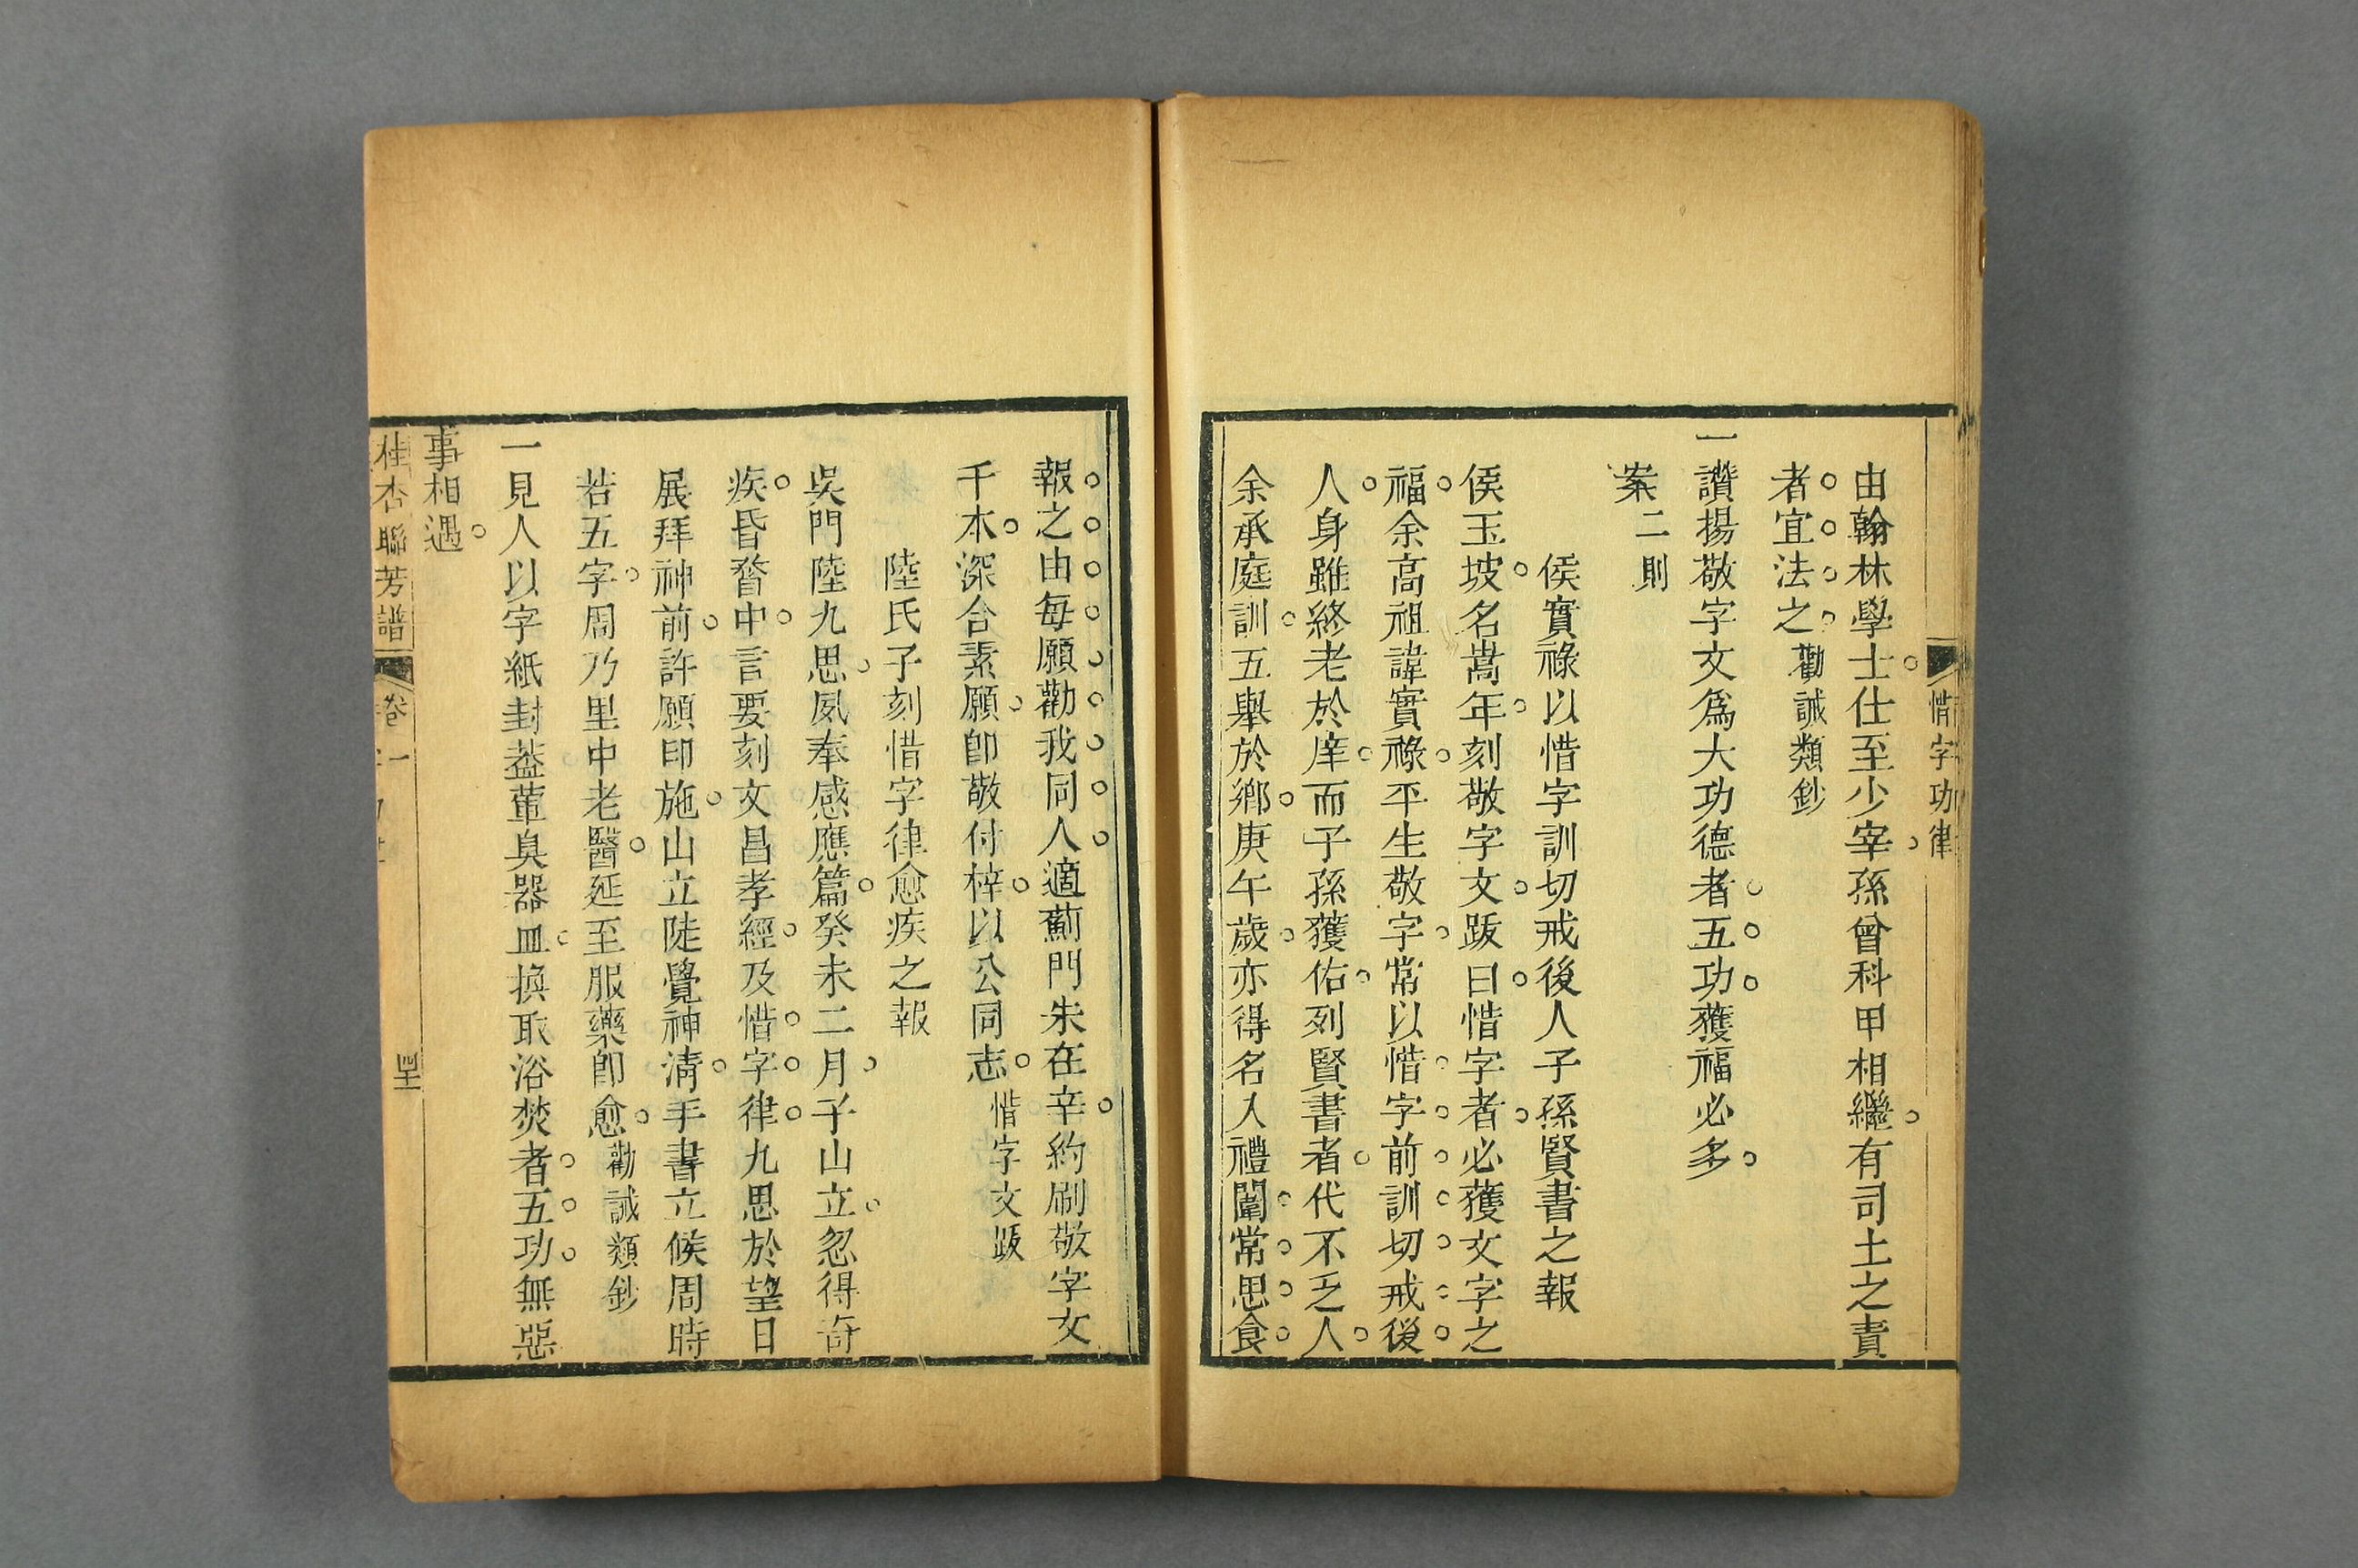 惜字功律
由翰林學士仕至少宰孫曾科甲相繼有司土之責
者宜法之勸誡類鈔
一讚揚敬字文爲大功德者五功獲福必多
案二則
侯實祿以惜字訓切戒後人子孫賢書之報
侯玉坡名嵩年刻敬字文跋曰惜字者必獲文字之
福余高祖諱實祿平生敬字常以惜字前訓切戒後
人身雖終老於庠而子孫獲佑列賢書者代不乏人
余承庭訓五舉於鄉庚午歲亦得名入禮闈常思食
報之由每願勸我同人適薊門朱在辛約刷敬字文
千本深合素願卽敬付梓以公同志惜字文跋
陸氏子刻惜字律愈疾之報
吳門陸九思夙奉感應篇癸未二月子山立忽得奇
疾昏瞀中言要刻文昌孝經及惜字律九思於望日
展拜神前許願印施山立陡覺神淸手書立候周時
若五字周乃里中老醫延至服藥卽愈勸誡類鈔
一見人以字紙封葢葷臭器皿換取浴焚者五功無惡
事相遇
桂杏聯芳譜 卷一